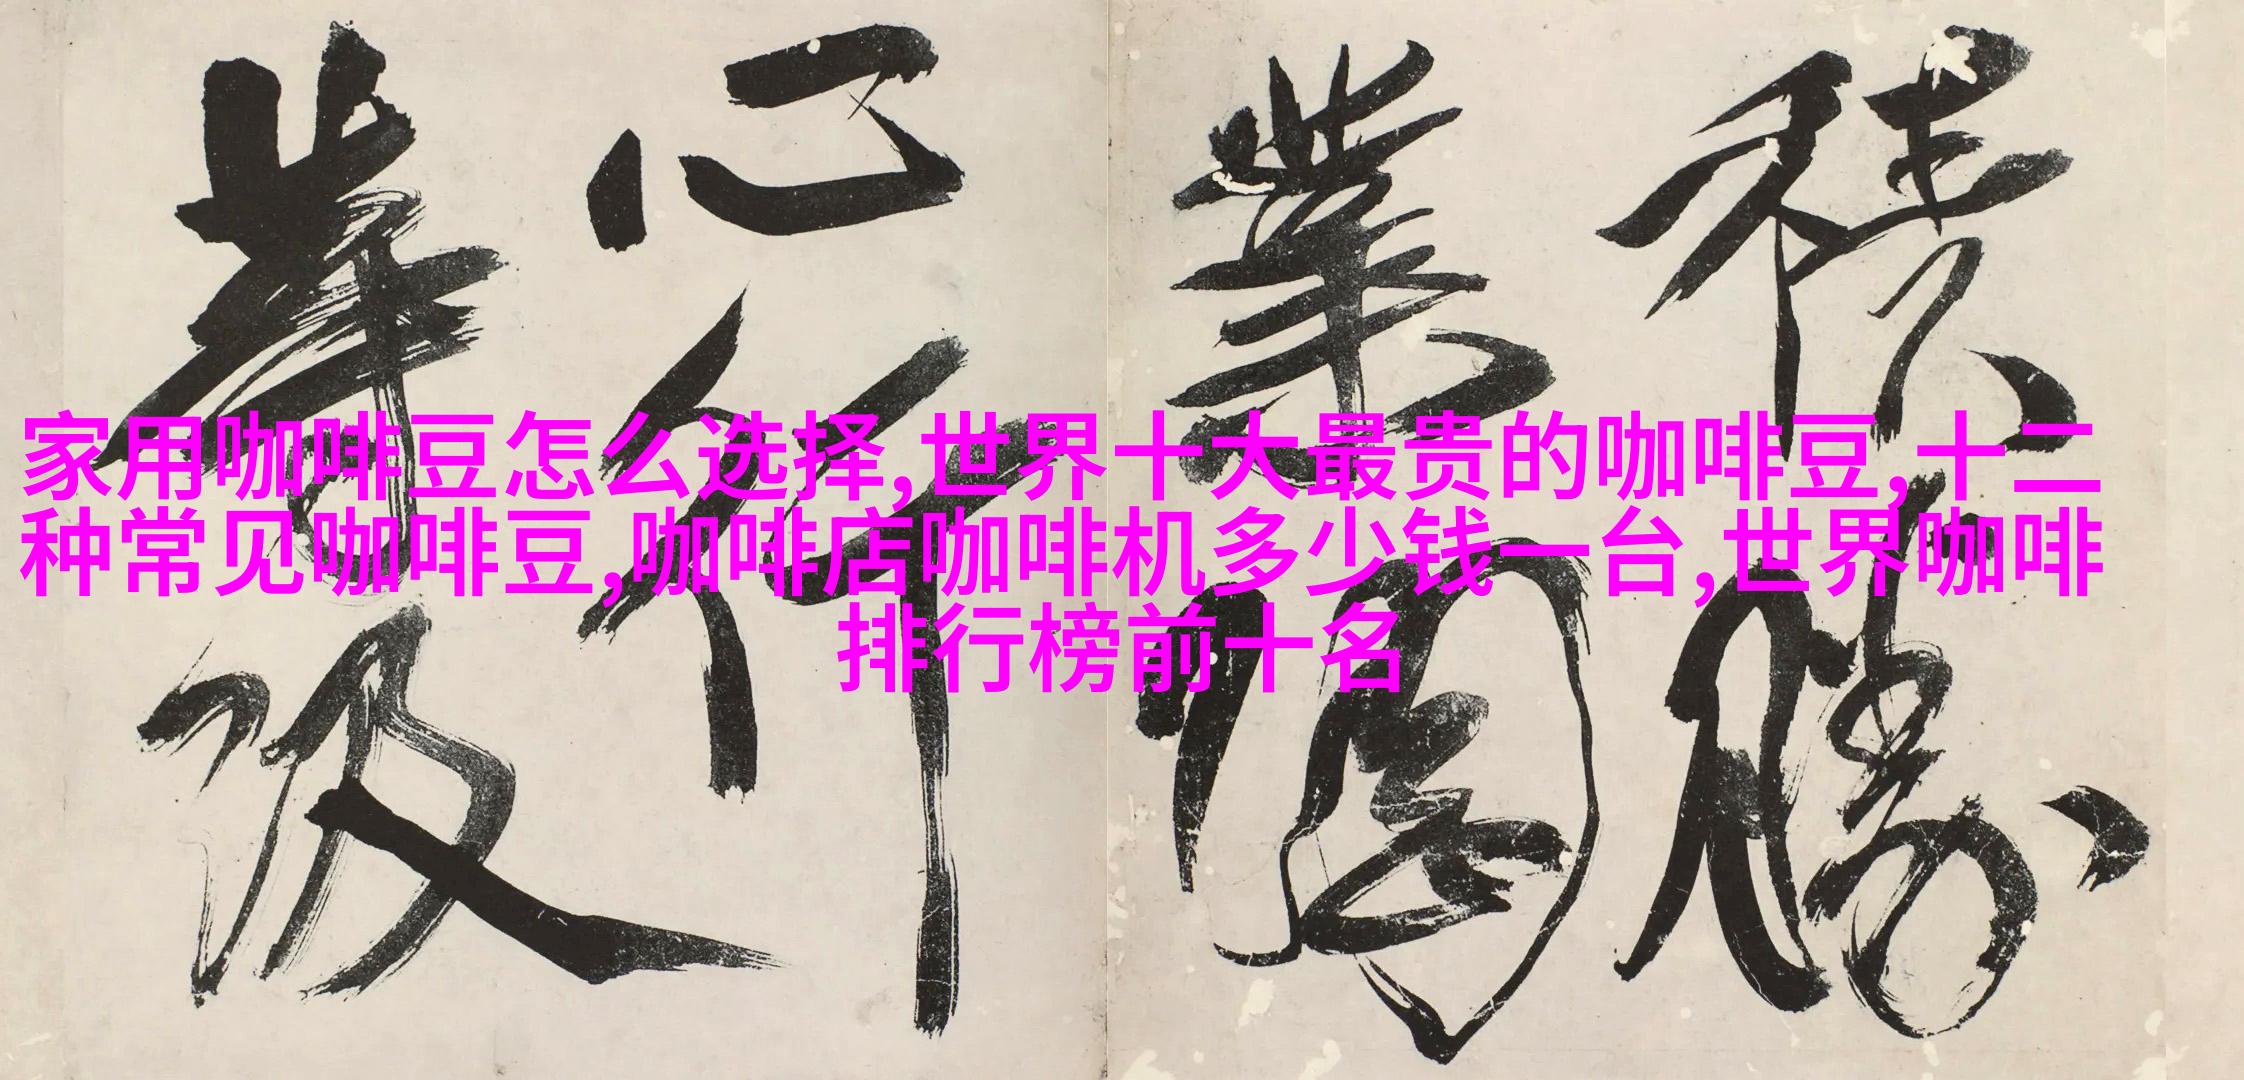 家用咖啡豆怎么选择,世界十大最贵的咖啡豆,十二
种常见咖啡豆,咖啡店咖啡机多少钱一台,世界咖啡
排行榜前十名
積勝
業圓
心行